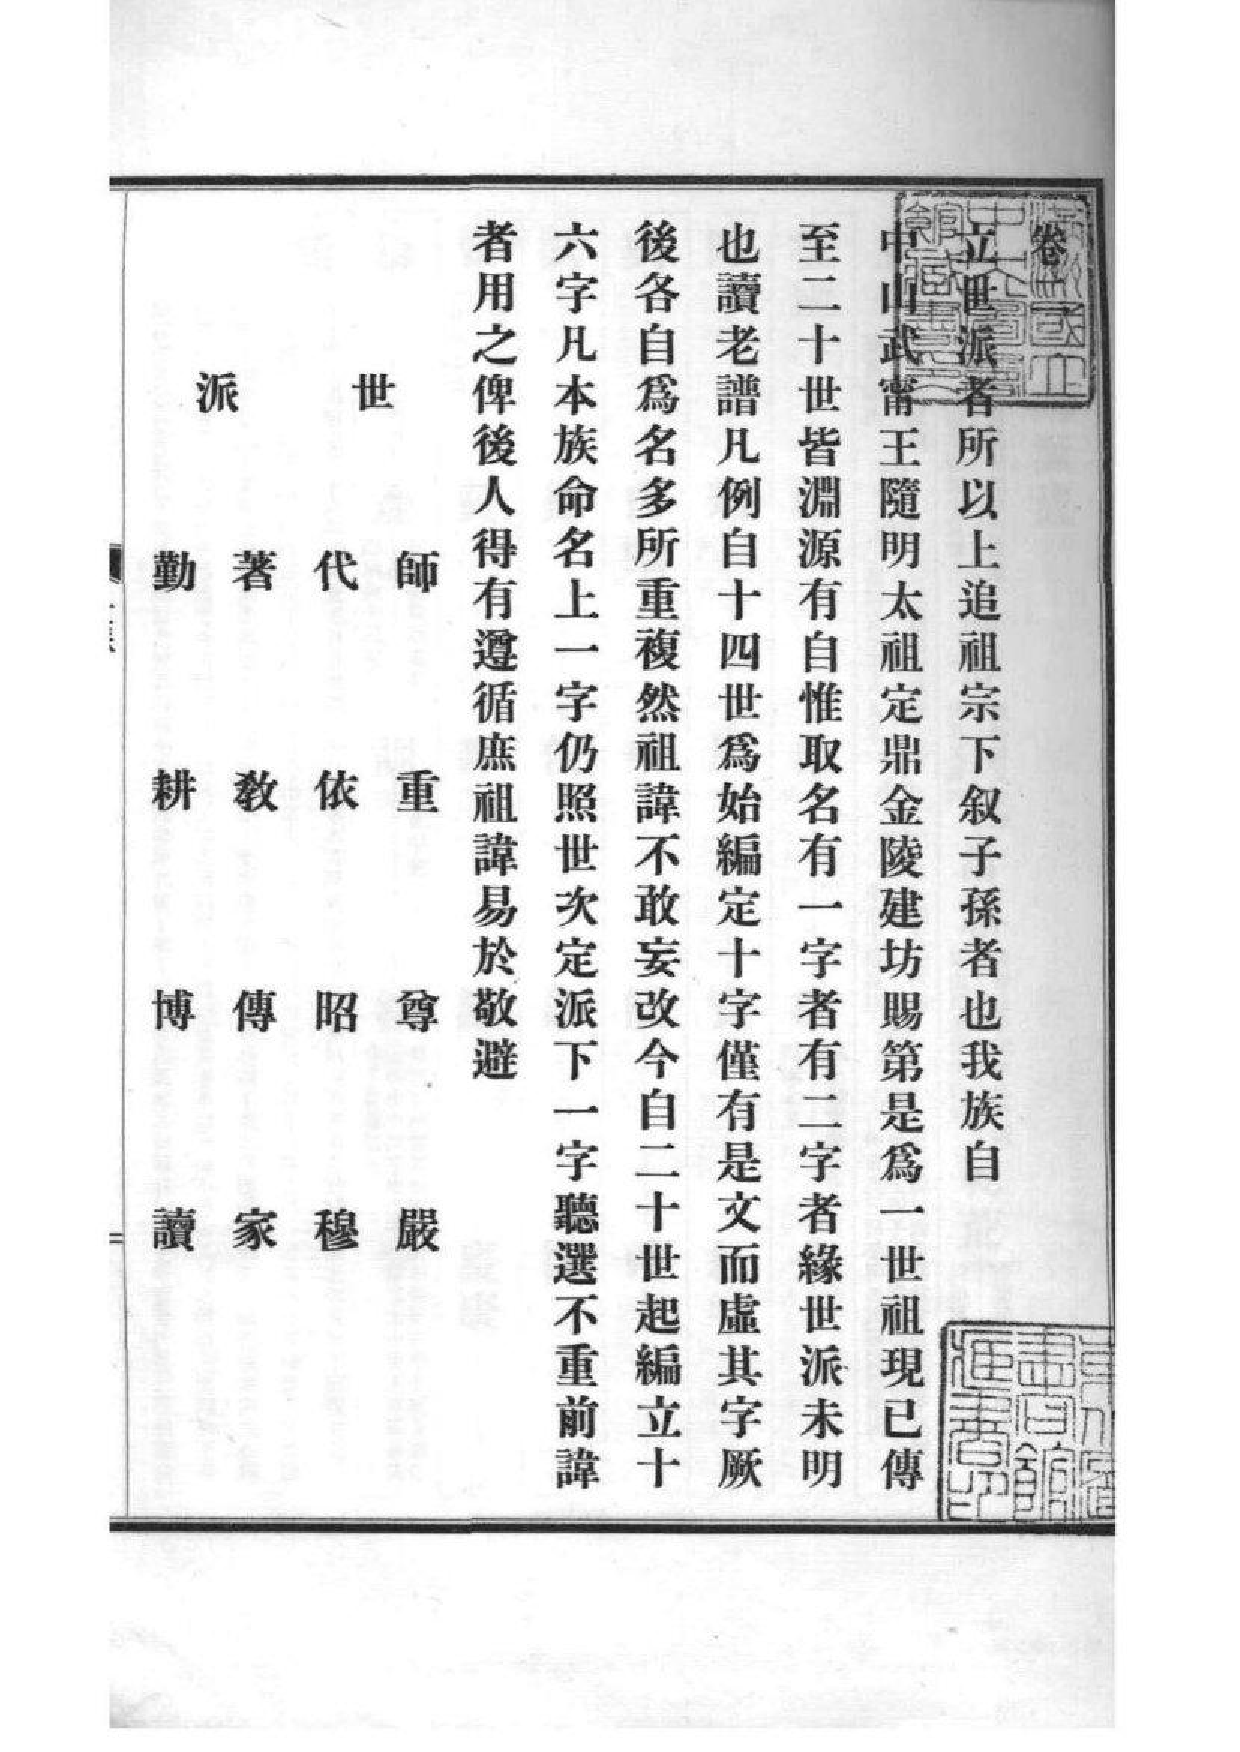 卷一
立世派者所以上追祖宗下叙子孫者也我族自
中山武甯王隨明太祖定鼎金陵建坊賜第是爲一世祖現已傳
至二十世皆淵源有自惟取名有一字者有二字者緣世派未明
也讀老譜凡例自十四世爲始編定十字僅有是文而虛其字厥
後各自爲名多所重複然祖諱不敢妄改今自二十世起編立十
六字凡本族命名上一字仍照世次定派下一字聽選不重前諱
者用之俾後人得有遵循庶祖諱易於敬避
世派
師重尊嚴
代依昭穆
著教傳家
勤耕博讀